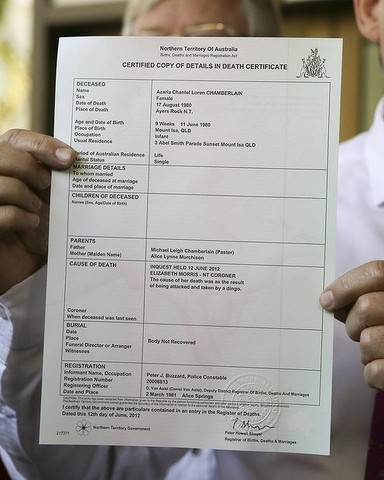 Northern Territory Of Australia
Births, Deaths and Marriages Registration Act
CERTIFIED COPY OF DETAILS IN DEATH CERTIFICATE
DECEASED
Name Azaria Chantel Loren CHAMBERLAIN
Sex Female
Date of Death 17 August 1980
Place of Death Ayers Rock N.T.
Age and Date of Birth 9 Weeks 11 June 1980
Place of Birth Mount Isa, QLD
Occupation Infant
Usual Residence 3 Abel Smith Parade Sunset Mount Isa, QLD
Period of Australian Residence Life
Marital Status Single
MARRIAGE DETAILS
To whom married
Age of deceased at marriage
Date and place of marriage
CHILDREN OF DECEASED
Names (Sex, Age/Date of Birth)
PARENTS
Father Michael Leigh Chamberlain (Pastor)
Mother (Maiden Name) Alice Lynne Murchison
CAUSE OF DEATH INQUEST HELD 12 JUNE 2012
ELIZABETH MORRIS - NT CORONER
The cause of her death was as the result
of being attacked and taken by a dingo.
Coroner
When deceased was last seen
BURIAL
Date
Place Body Not Recovered
Funeral Director or Arranger
Witnesses
REGISTRATION
Informant Name, Occupation Peter J. Buzzard, Police Constable
Registration Number 20008813
Registering Officer Deputy District Registrar Of Births, Deaths And Marriages
Date and Place 2 March 1981 Alice Springs
I certify that the above are particulars contained in an entry in the Register of Deaths.
Dated this 12th day of June, 2012
Northern Territory Government
Registrar of Births, Deaths & Marriages